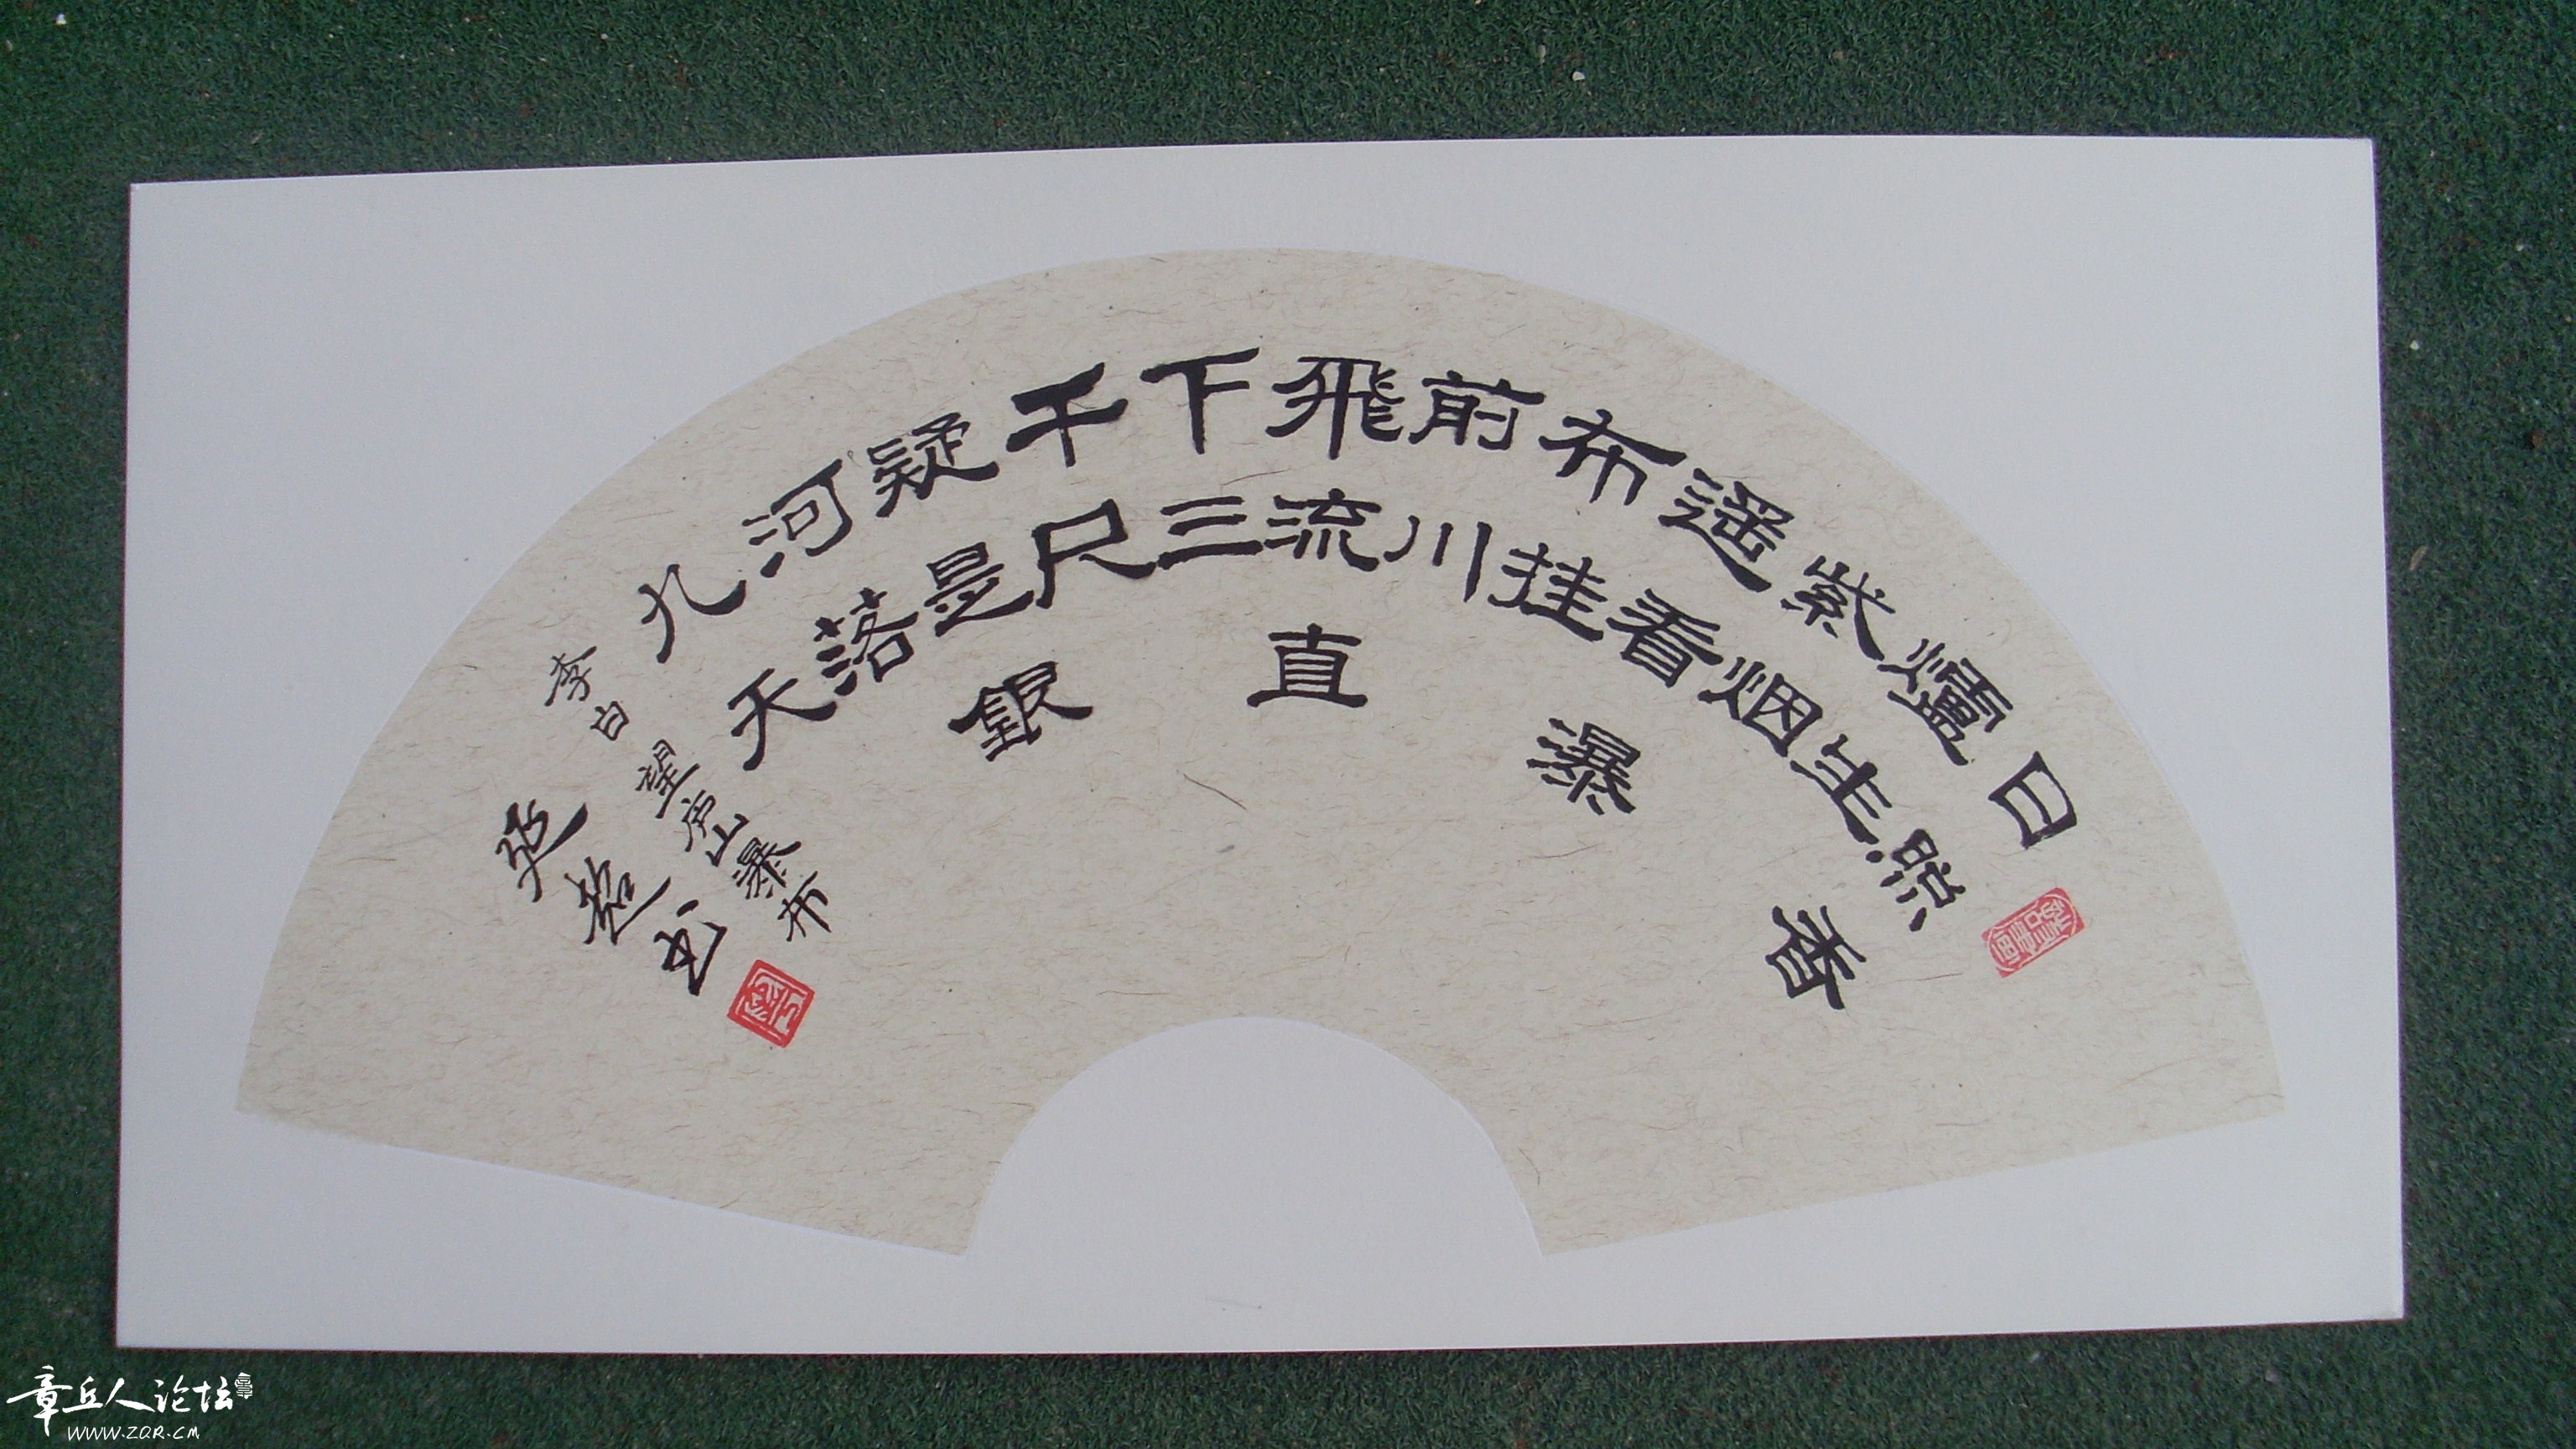 日照香
爐生
紫烟
遥看瀑
布挂
前川
飛流直
下三
千尺
疑是銀
河落
九天
李白望庐山瀑布
书
章丘人论坛
WWW.ZQR.CM